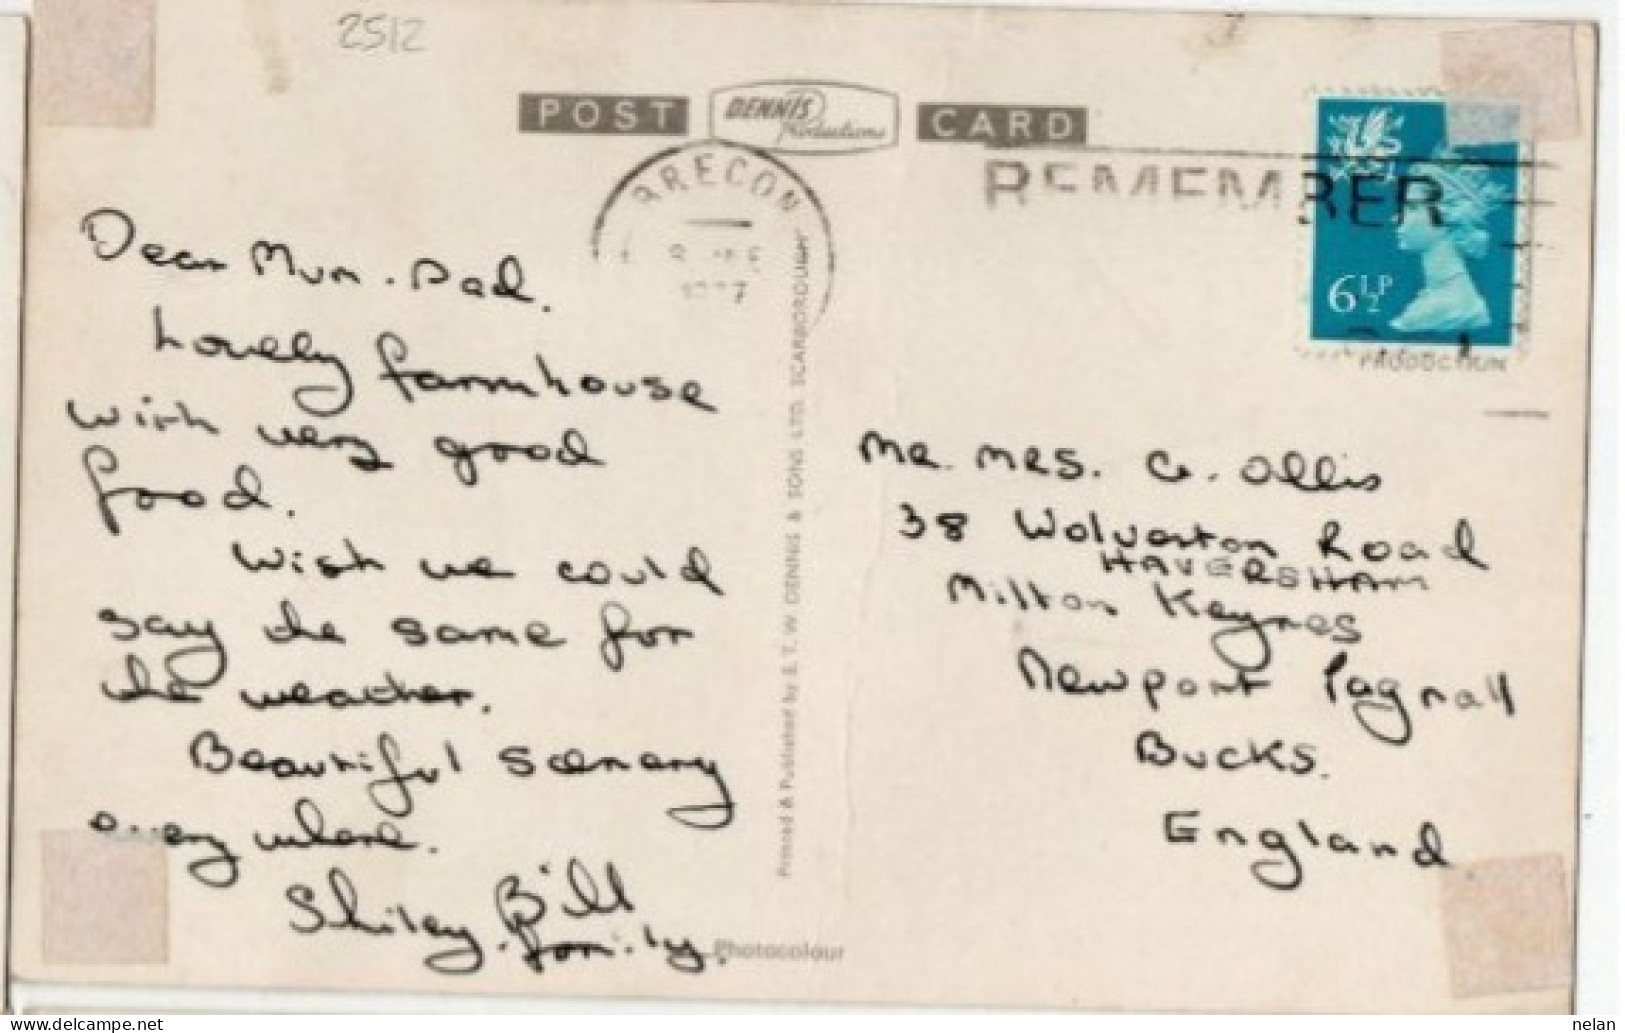 2512
POST DENNIS Productions CARD
BRECON
1977
REMEMBER
6½P
Dear Mum. Dad.
Lovely farmhouse
with very good
food.
Wish we could
say the same for
the weather.
Beautiful scenery
every where.
Shiley. Bill
family.
Printed & Published by E. T. W. DENNIS & SONS LTD. SCARBOROUGH
Photocolour
Mr. Mrs. G. Ollis
38 Wolverton Road
HAVERSHAM
Milton Keynes
Newport Pagnall
Bucks.
England
nelan